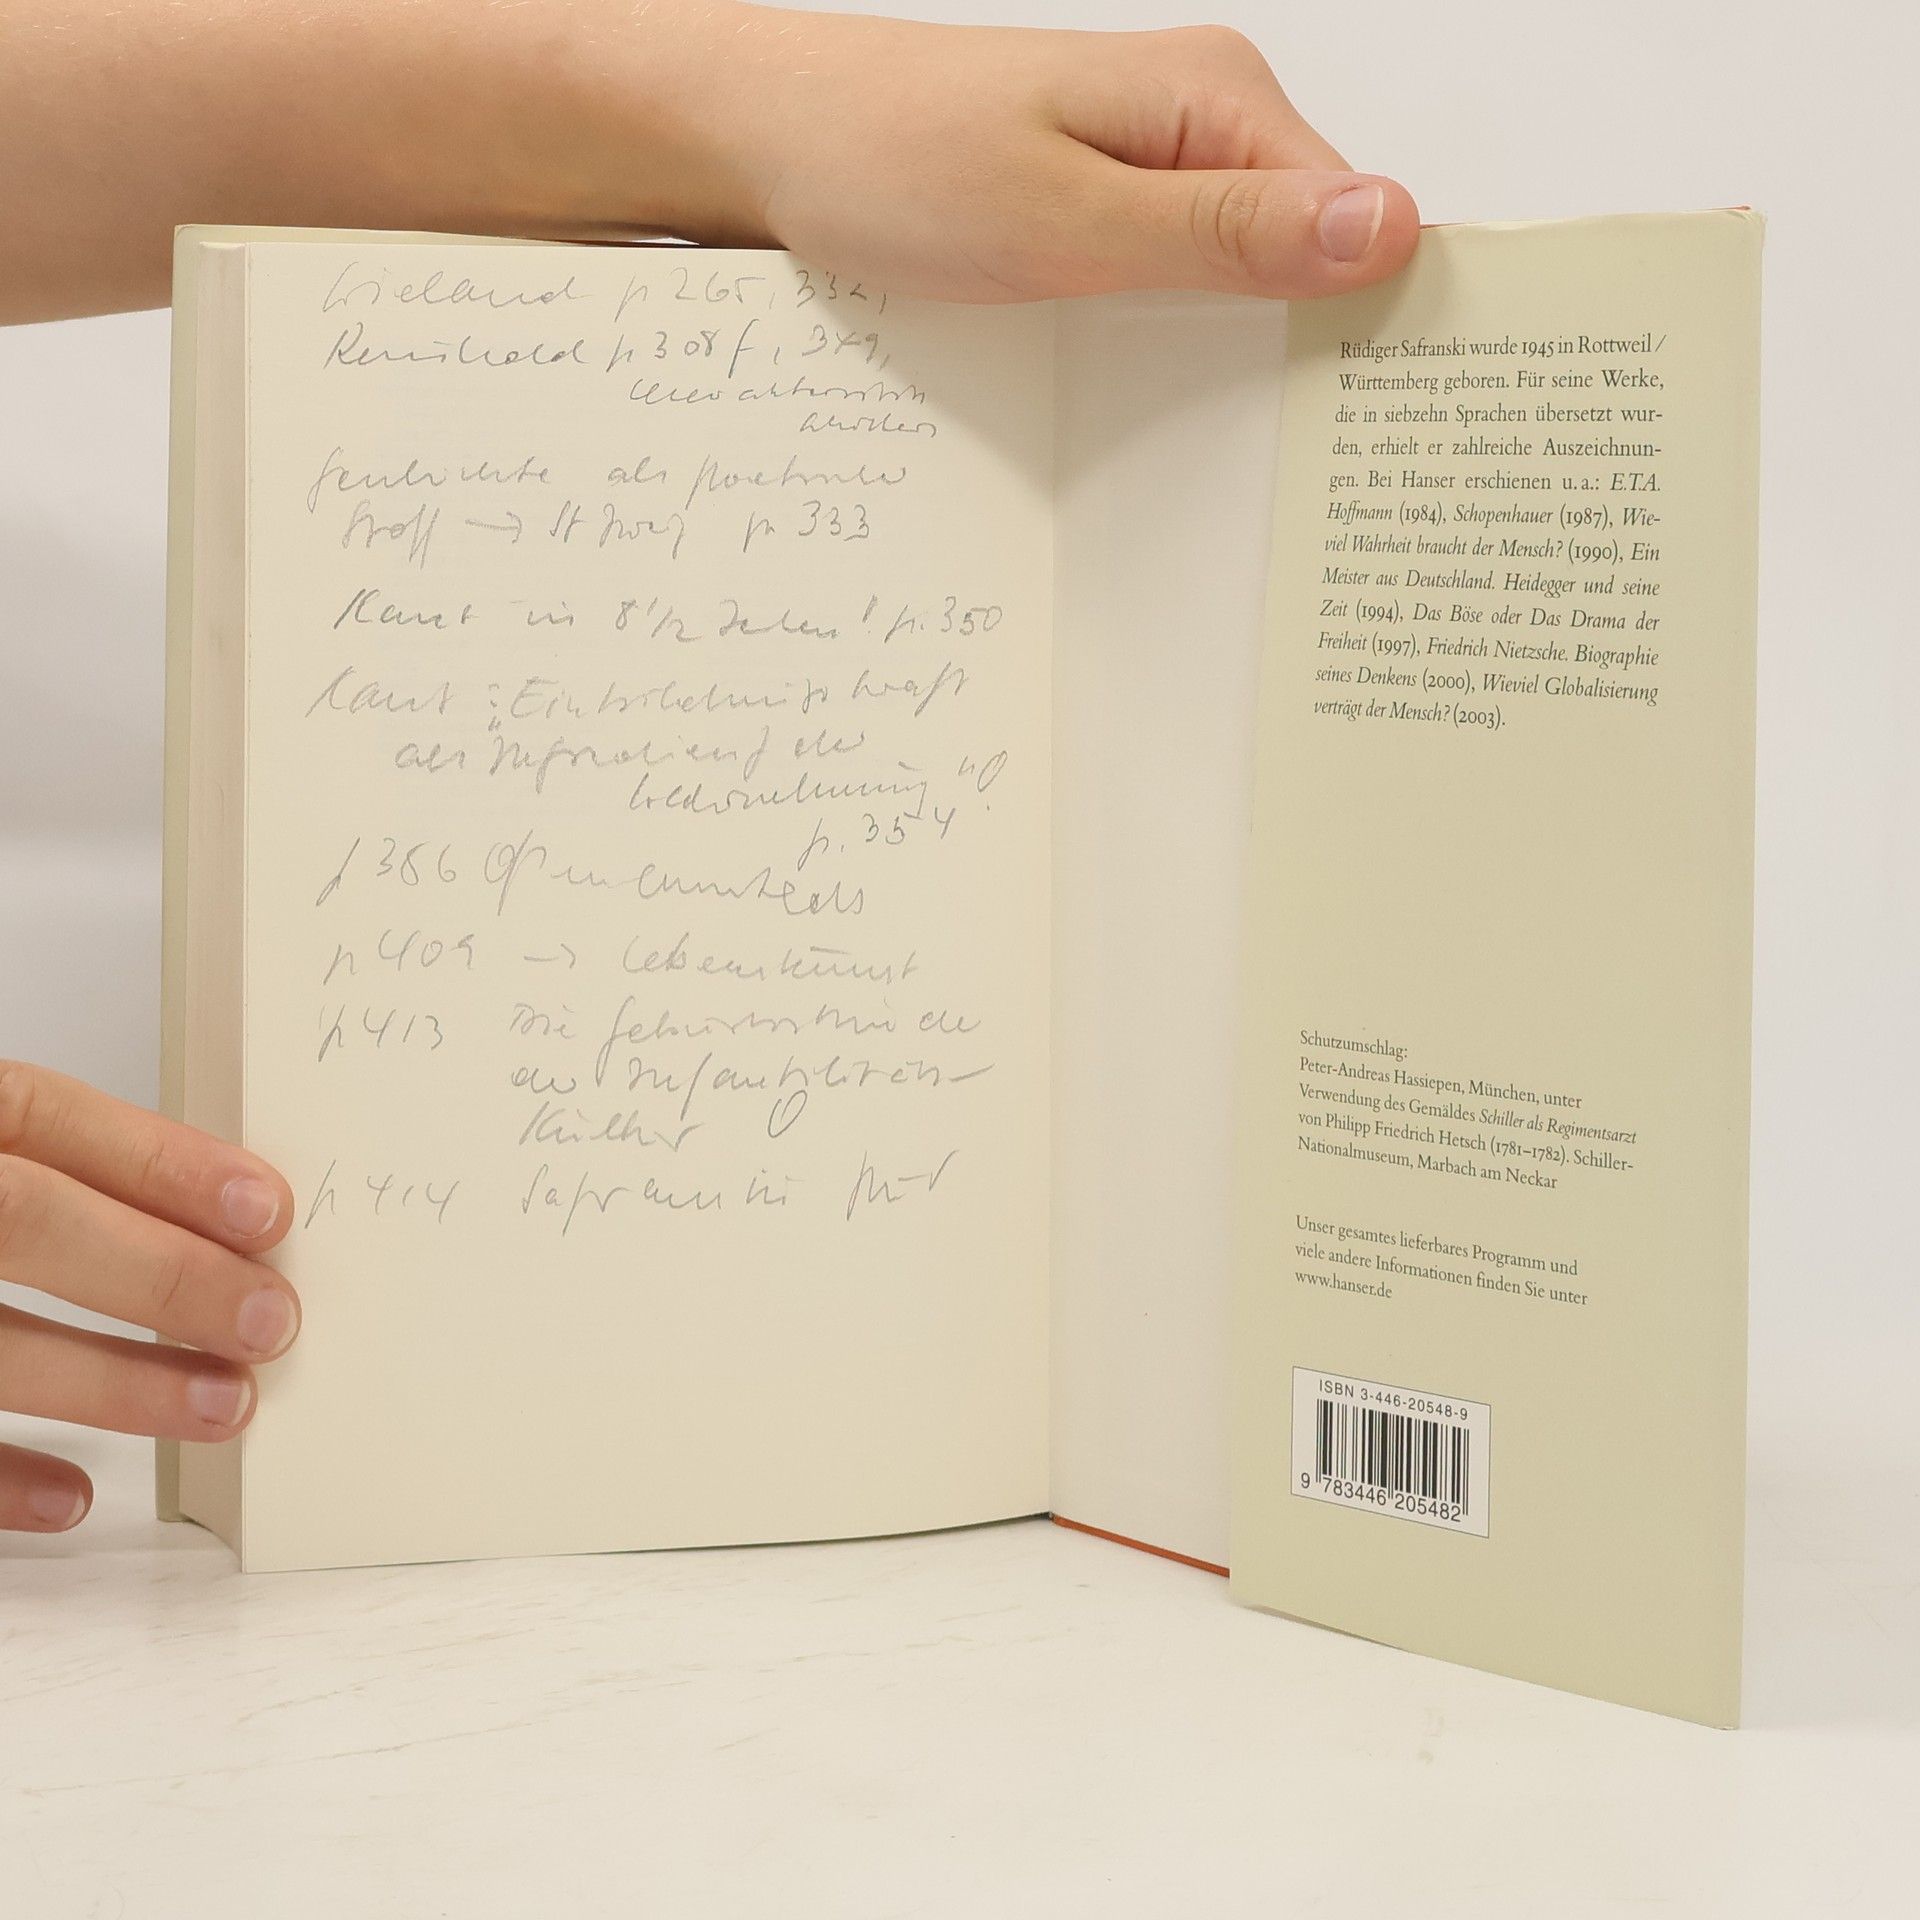 Wieland p 265, 332,
Reinhold p 308 f, 349,
Geschichte als poetischer
Stoff → St Zweig p 333
Kant in 8 1/2 Jahren! p. 350
Kant: „Einbildungskraft
als Ingredienz der
Wahrnehmung"!
p. 354
p 386
p 409 → Lebenskunst
p 413 Die Geburtsstunde
der Infantilitäts-
Kultur
p 414 Safranski
Rüdiger Safranski wurde 1945 in Rottweil/
Württemberg geboren. Für seine Werke,
die in siebzehn Sprachen übersetzt wur-
den, erhielt er zahlreiche Auszeichnun-
gen. Bei Hanser erschienen u. a.: E.T.A.
Hoffmann (1984), Schopenhauer (1987), Wie-
viel Wahrheit braucht der Mensch? (1990), Ein
Meister aus Deutschland. Heidegger und seine
Zeit (1994), Das Böse oder Das Drama der
Freiheit (1997), Friedrich Nietzsche. Biographie
seines Denkens (2000), Wieviel Globalisierung
verträgt der Mensch? (2003).
Schutzumschlag:
Peter-Andreas Hassiepen, München, unter
Verwendung des Gemäldes Schiller als Regimentsarzt
von Philipp Friedrich Hetsch (1781–1782). Schiller-
Nationalmuseum, Marbach am Neckar
Unser gesamtes lieferbares Programm und
viele andere Informationen finden Sie unter
www.hanser.de
ISBN 3-446-20548-9
9 783446 205482